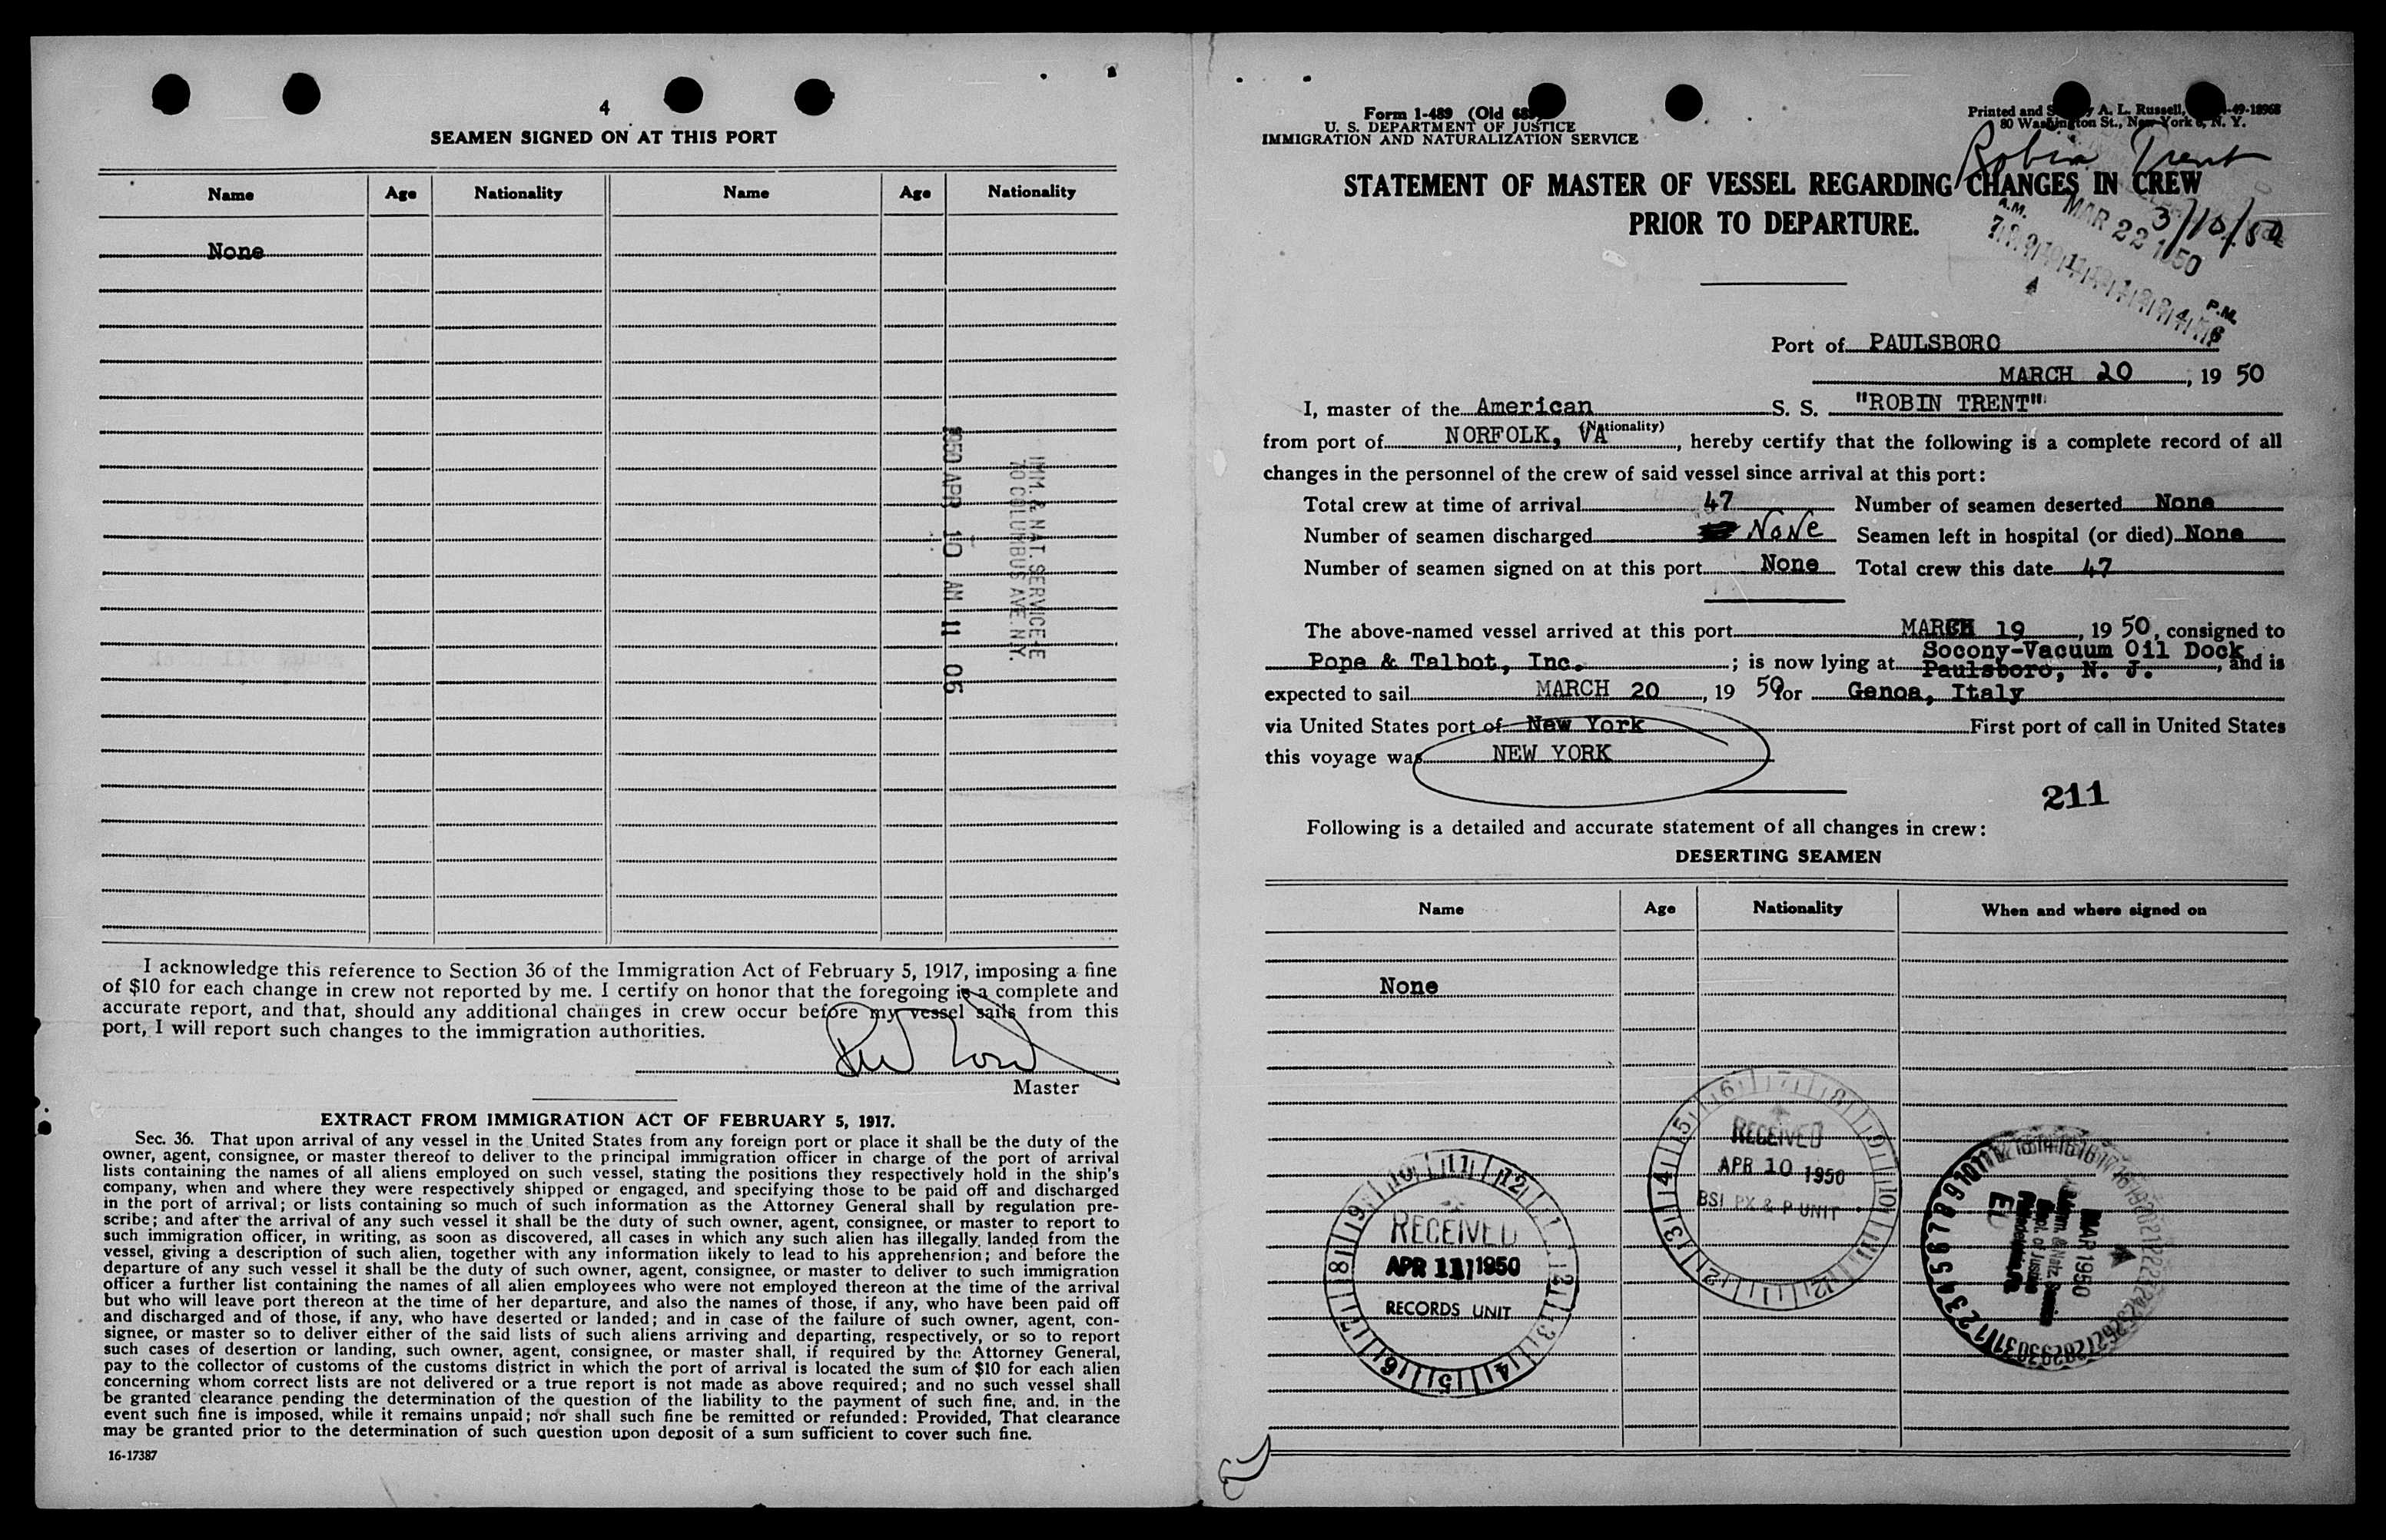 4
SEAMEN SIGNED ON AT THIS PORT
Name Age Nationality Name Age Nationality
None
1950 APR 10 AM 11 05
IMM. & NAT. SERVICE
70 COLUMBUS AVE. N.Y.
I acknowledge this reference to Section 36 of the Immigration Act of February 5, 1917, imposing a fine
of $10 for each change in crew not reported by me. I certify on honor that the foregoing is a complete and
accurate report, and that, should any additional changes in crew occur before my vessel sails from this
port, I will report such changes to the immigration authorities.
Master
EXTRACT FROM IMMIGRATION ACT OF FEBRUARY 5, 1917.
Sec. 36. That upon arrival of any vessel in the United States from any foreign port or place it shall be the duty of the
owner, agent, consignee, or master thereof to deliver to the principal immigration officer in charge of the port of arrival
lists containing the names of all aliens employed on such vessel, stating the positions they respectively hold in the ship's
company, when and where they were respectively shipped or engaged, and specifying those to be paid off and discharged
in the port of arrival; or lists containing so much of such information as the Attorney General shall by regulation pre-
scribe; and after the arrival of any such vessel it shall be the duty of such owner, agent, consignee, or master to report to
such immigration officer, in writing, as soon as discovered, all cases in which any such alien has illegally landed from the
vessel, giving a description of such alien, together with any information likely to lead to his apprehension; and before the
departure of any such vessel it shall be the duty of such owner, agent, consignee, or master to deliver to such immigration
officer a further list containing the names of all alien employees who were not employed thereon at the time of the arrival
but who will leave port thereon at the time of her departure, and also the names of those, if any, who have been paid off
and discharged and of those, if any, who have deserted or landed; and in case of the failure of such owner, agent, con-
signee, or master so to deliver either of the said lists of such aliens arriving and departing, respectively, or so to report
such cases of desertion or landing, such owner, agent, consignee, or master shall, if required by the Attorney General,
pay to the collector of customs of the customs district in which the port of arrival is located the sum of $10 for each alien
concerning whom correct lists are not delivered or a true report is not made as above required; and no such vessel shall
be granted clearance pending the determination of the question of the liability to the payment of such fine, and, in the
event such fine is imposed, while it remains unpaid; nor shall such fine be remitted or refunded: Provided, That clearance
may be granted prior to the determination of such question upon deposit of a sum sufficient to cover such fine.
16-17387
Form 1-489 (Old 689)
U. S. DEPARTMENT OF JUSTICE
IMMIGRATION AND NATURALIZATION SERVICE
Printed and A. L. Russell, 49-18968
80 Washington St., New York 6, N. Y.
Robin Trent
STATEMENT OF MASTER OF VESSEL REGARDING CHANGES IN CREW
PRIOR TO DEPARTURE.
3/10/50
A.M. MAR 22 1950 P.M.
Port of PAULSBORO
MARCH 20, 19 50
I, master of the American S. S. "ROBIN TRENT"
(Nationality)
from port of NORFOLK, VA, hereby certify that the following is a complete record of all
changes in the personnel of the crew of said vessel since arrival at this port:
Total crew at time of arrival 47 Number of seamen deserted None
Number of seamen discharged None Seamen left in hospital (or died) None
Number of seamen signed on at this port None Total crew this date 47
The above-named vessel arrived at this port MARCH 19, 19 50, consigned to
Pope & Talbot, Inc.; is now lying at Socony-Vacuum Oil Dock
Paulsboro, N. J., and is
expected to sail MARCH 20, 19 50 for Genoa, Italy
via United States port of New York First port of call in United States
this voyage was NEW YORK
211
Following is a detailed and accurate statement of all changes in crew:
DESERTING SEAMEN
Name Age Nationality When and where signed on
None
RECEIVED
APR 10 1950
BSI PX & P UNIT
RECEIVED
APR 11 1950
RECORDS UNIT
MAR 1950